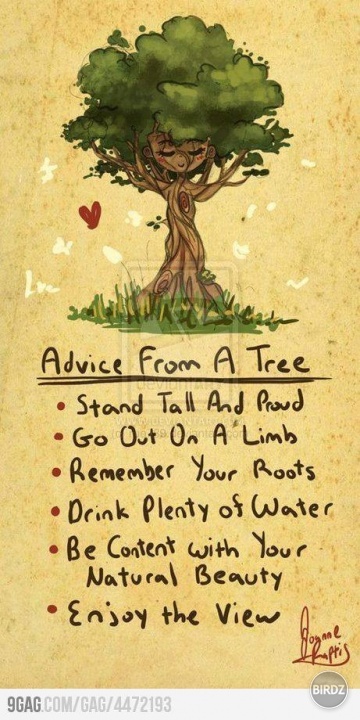 Advice From A Tree
• Stand Tall And Proud
• Go Out On A Limb
• Remember Your Roots
• Drink Plenty of Water
• Be Content with Your
Natural Beauty
• Enjoy the View
Joanne
BIRDZ
9GAG.COM/GAG/4472193